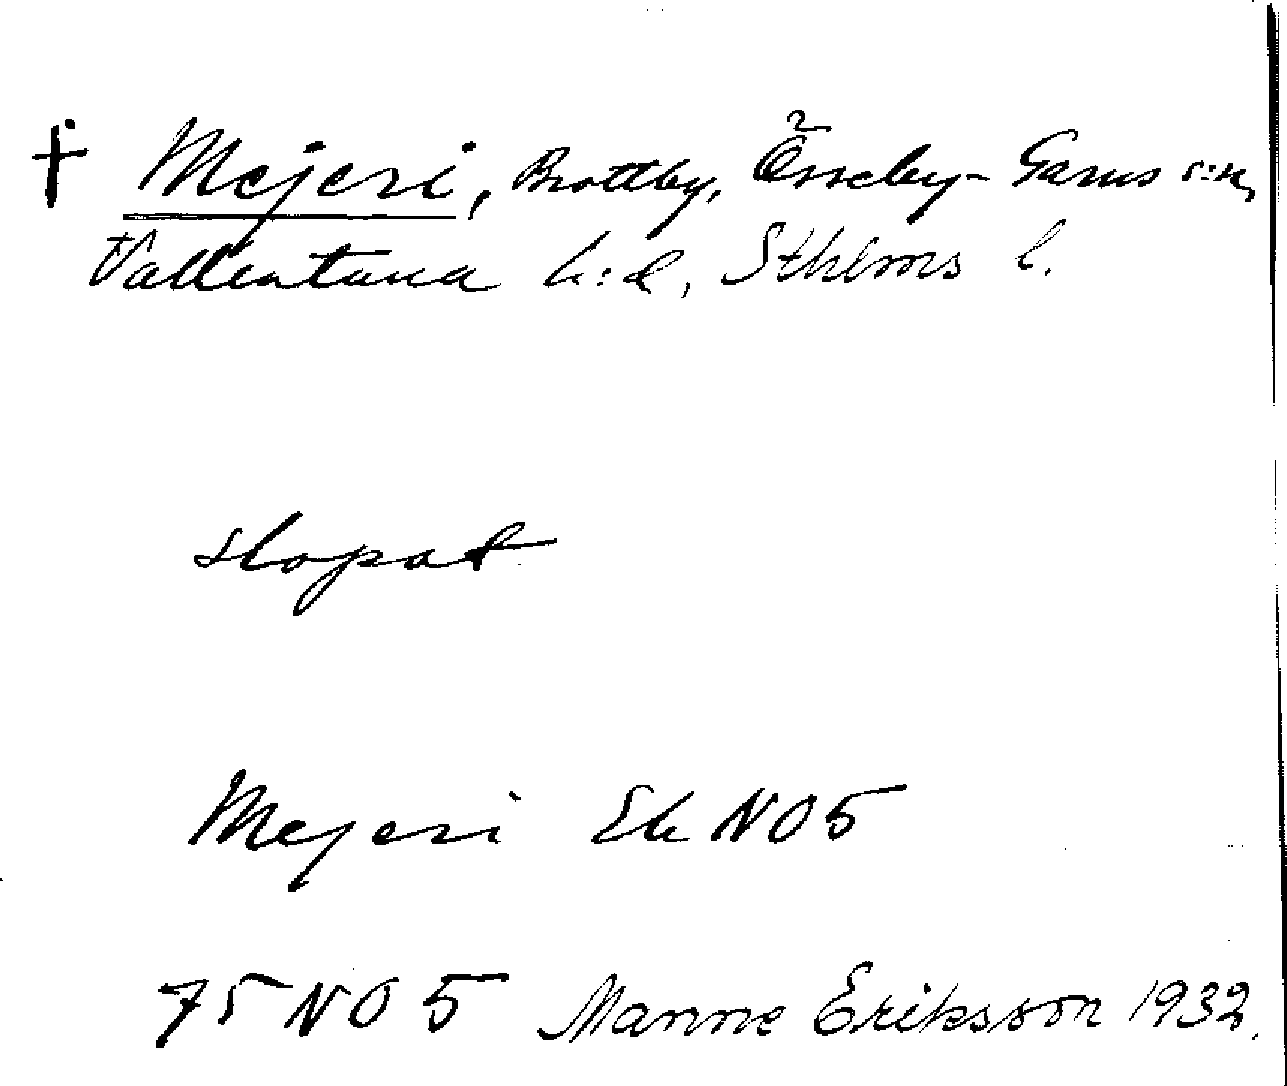 † Mejeri, Brottby, Össeby-Garns s:n,
Vallentuna h:d, Sthlms l.
slopat
Mejeri Ek NO5
75 NO 5 Manne Eriksson 1932.